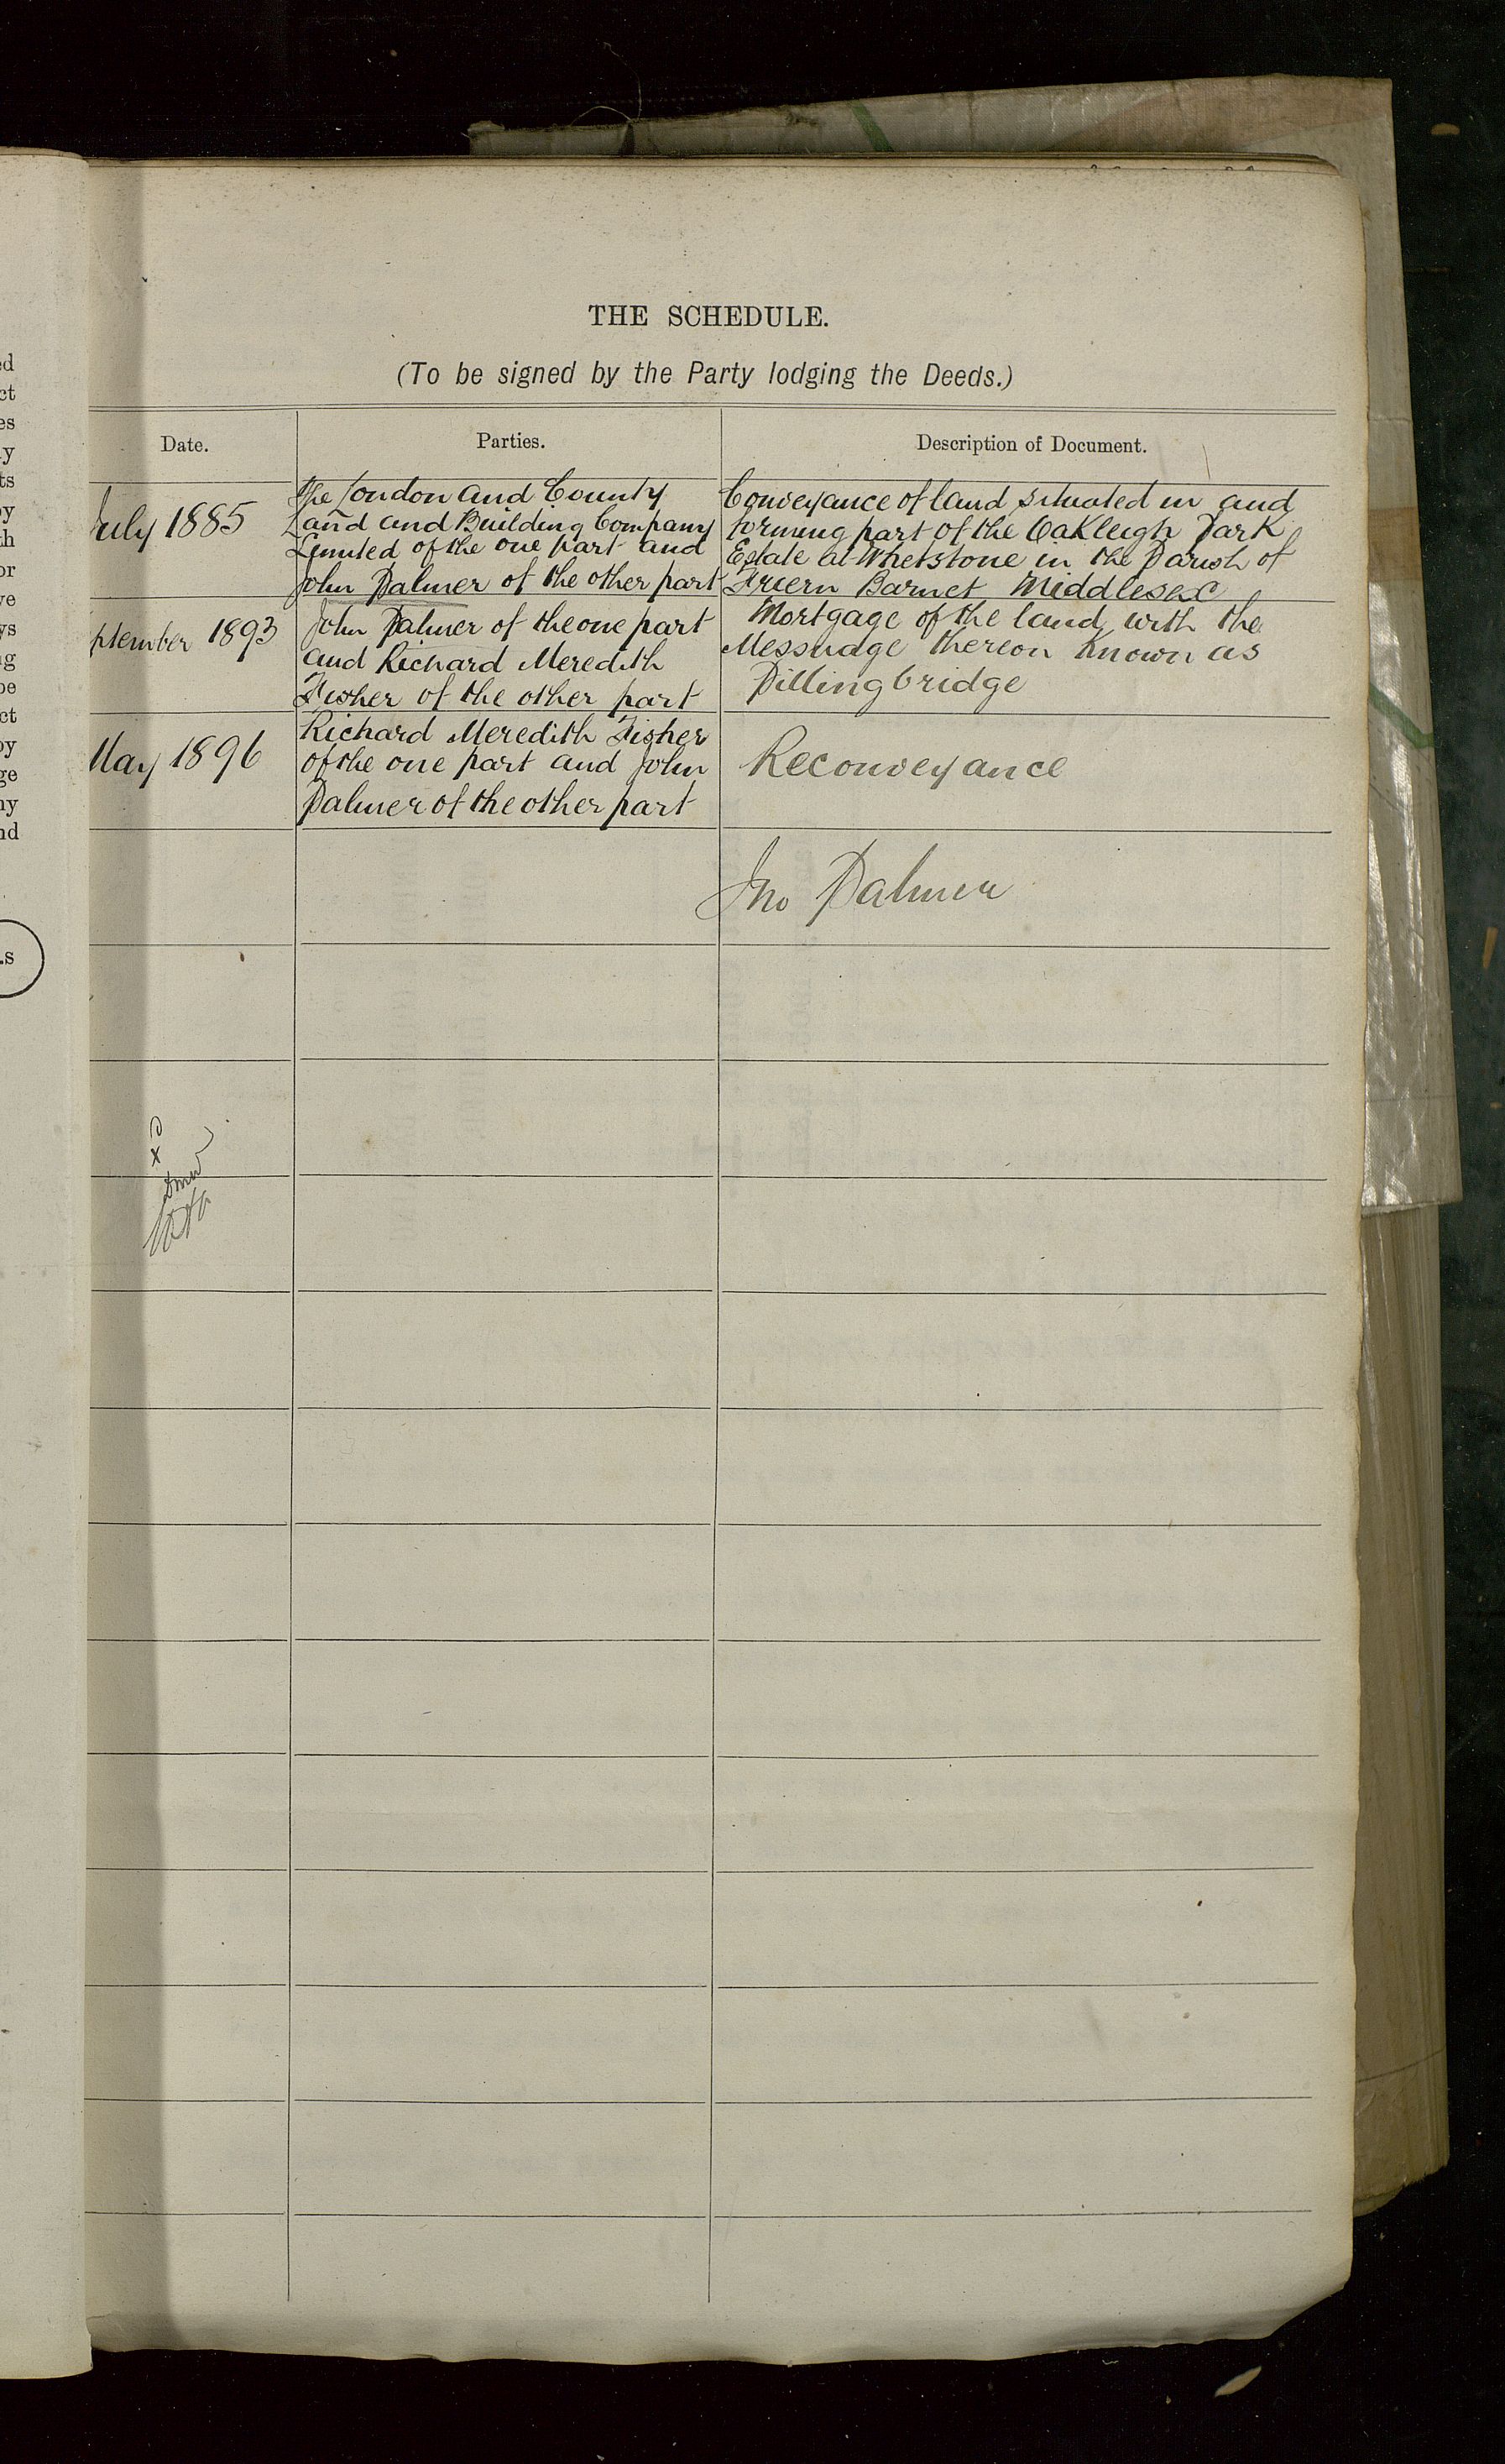 THE SCHEDULE.
(To be signed by the Party lodging the Deeds.)
Date.
Parties.
Description of Document.
July 1885
The London and County
Land and Building Company
Limited of the one part and
John Palmer of the other part
Conveyance of land situated in and
forming part of the Oakleigh Park
Estate at Whetstone in the Parish of
Friern Barnet Middlesex
ptember 1893
John Palmer of the one part
and Richard Meredith
Fisher of the other part
Mortgage of the land, with the
Messuage thereon known as
Pillingbridge
May 1896
Richard Meredith Fisher
of the one part and John
Palmer of the other part
Reconveyance
Jno Palmer
ed
ct
es
y
ts
by
th
or
ve
ys
ng
be
ct
by
ge
ny
nd
.s